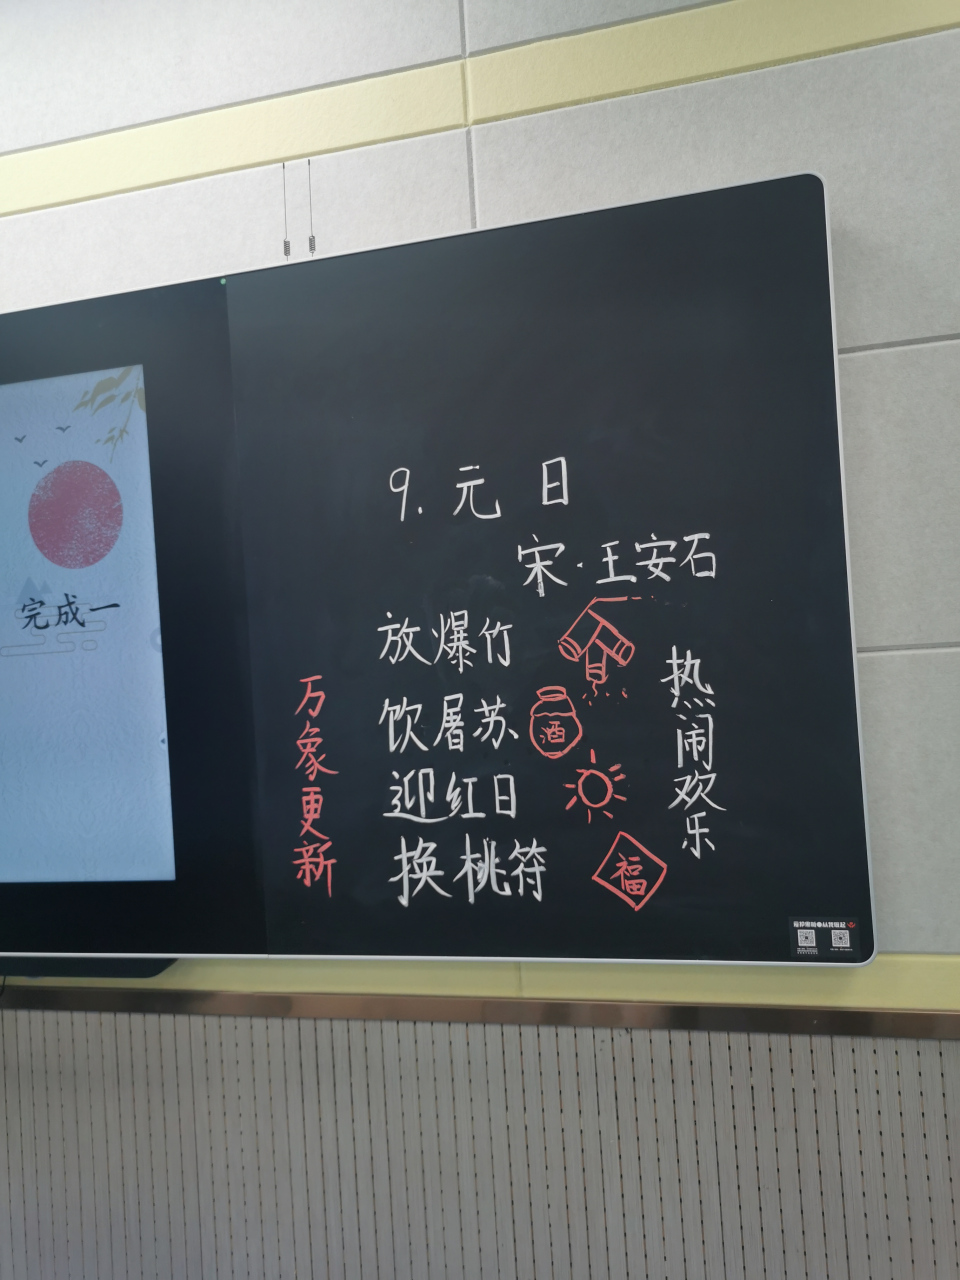 完成一
9. 元日
宋·王安石
放爆竹
饮屠苏
酒
迎红日
换桃符
福
万象更新
热闹欢乐